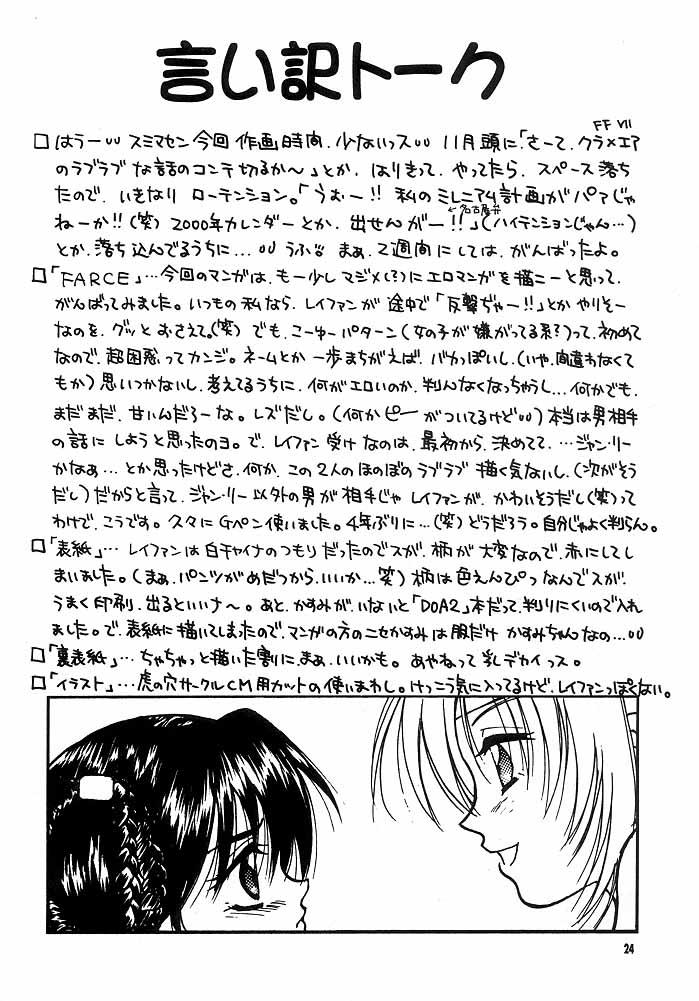 言い訳トーク
FF VII
□はうーυυ スミマセン今回 作画時間、少ないっスυυ 11月頭に「さーて、クラ×エア
のラブラブな話のコンテ切るか〜」とか、はりきって、やってたら、スペース落ち
たので、いきなり ローテンション。「うぉー!! 私のミレニアム計画がパアじゃ
←名古屋弁
ねーか!!(笑)2000年カレンダーとか、出せんがー!!」(ハイテンションじゃん…)
とか、落ち込んでるうちに…υυ うふ まぁ、2週間にしては、がんばったよ。
□「FARCE」…今回のマンガは、もー少しマジメ(?)にエロマンガを描こーと思って、
がんばってみました。いつもの私なら、レイファンが途中で「反撃ぢゃー!!」とかやりそー
なのを、グッとおさえて。(笑)でも、こーゆーパターン(女の子が嫌がってる系?)って、初めて
なので、超困惑ってカンジ。ネームとか一歩まちがえば、バカっぽいし、(いや、間違わなくて
もか)思いつかないし、考えてるうちに、何がエロいのか、判んなくなっちゃうし…何かでも、
まだまだ、甘いんだろーな。レズだし。(何かピーがついてるけどυυ)本当は男相手
の話にしようと思ったのヨ。で、レイファン受けなのは、最初から、決めてて、…ジャン・リー
かなぁ…とか思ったけどさ、何か、この2人のほのぼのラブラブ描く気ないし、(次がそう
だし)だからと言って、ジャン・リー以外の男が相手じゃレイファンが、かわいそうだし(笑)って
わけで、こうです。久々にGペン使いました。4年ぶりに…(笑)どうだろう。自分じゃよく判らん。
□「表紙」…レイファンは白チャイナのつもりだったのでスが、柄が大変なので、赤にしてし
まいました。(まぁ、パンツがめだつから、いいか…笑)柄は色えんぴつなんでスが、
うまく印刷、出るといいナ〜。あと、かすみが、いないと「DOA2」本だって、判りにくいので入れ
ました。で、表紙に描いてしまったので、マンガの方のニセかすみは服だけ かすみちゃんなの…υυ
□「裏表紙」…ちゃちゃっと描いた割にまぁ、いいかも。あやねって乳デカイっス。
□「イラスト」…虎の穴サークルCM用カットの使いまわし。けっこう気に入ってるけど、レイファンっぽくない。
24